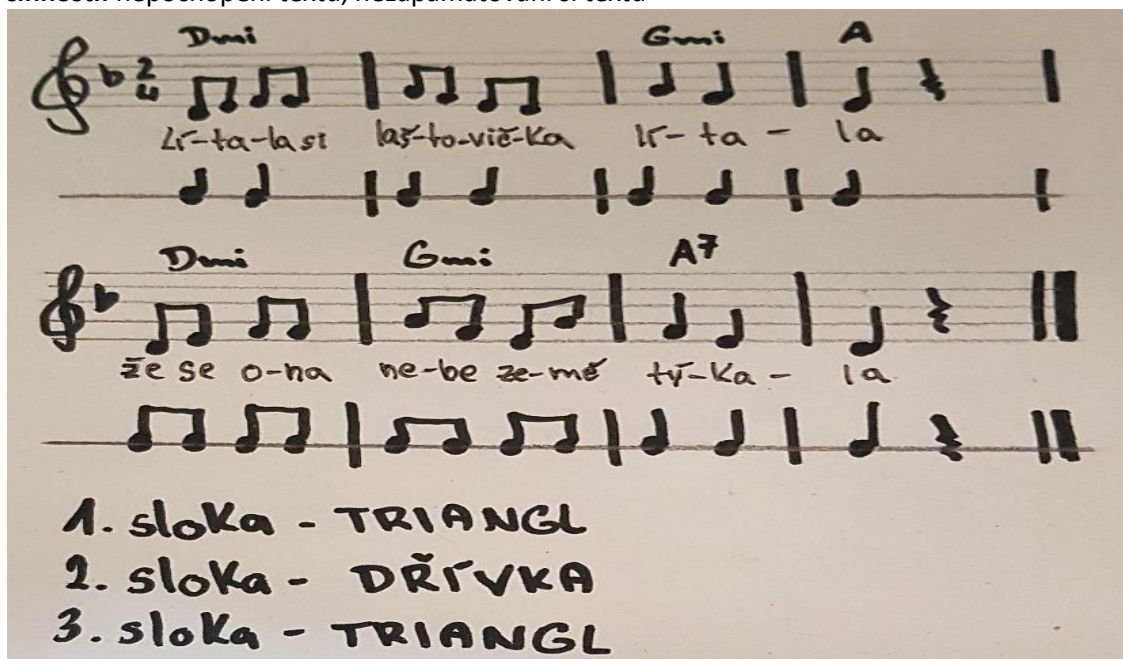 nepochopení textu, nezapamatování si textu
Dmi Gmi A
2
4
Lí-ta-la si laš-to-vič-ka lí-ta-la
Dmi Gmi A7
že se o-na ne-be ze-mě tý-ka-la
1. sloka - TRIANGL
2. sloka - DŘÍVKA
3. sloka - TRIANGL